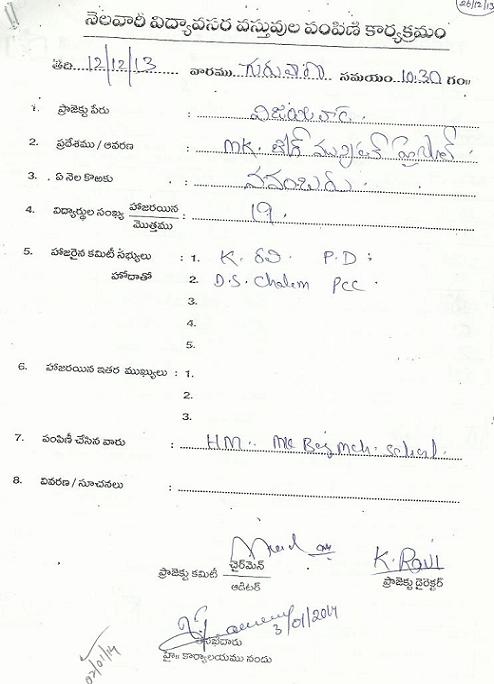 26/12/13
నెలవారీ విద్యావసర వస్తువుల పంపిణీ కార్యక్రమం
తేది 12/12/13 వారము గురువారం సమయం 10:30 గం॥
1. ప్రాజెక్టు పేరు : విజయవాడ
2. ప్రదేశము / ఆవరణ : MK. బేగ్
3. ఏ నెల కొఱకు : నవంబరు
4. విద్యార్థుల సంఖ్య హాజరయిన / మొత్తము : 19.
5. హాజరైన కమిటీ సభ్యులు : 1. K. రవి. P.D :
హోదాతో 2. D.S. Chalem PCC.
3.
4.
5.
6. హాజరయిన ఇతర ముఖ్యులు : 1.
2.
3.
7. పంపిణీ చేసిన వారు : HM. MK Beg Mch. School.
8. వివరణ / సూచనలు :
ప్రాజెక్టు కమిటీ ఛైర్‌మెన్ / ఆడిటర్
K. Ravi
ప్రాజెక్టు డైరెక్టర్
3/01/2014
హై॥ కార్యాలయము నందు
07/01/14